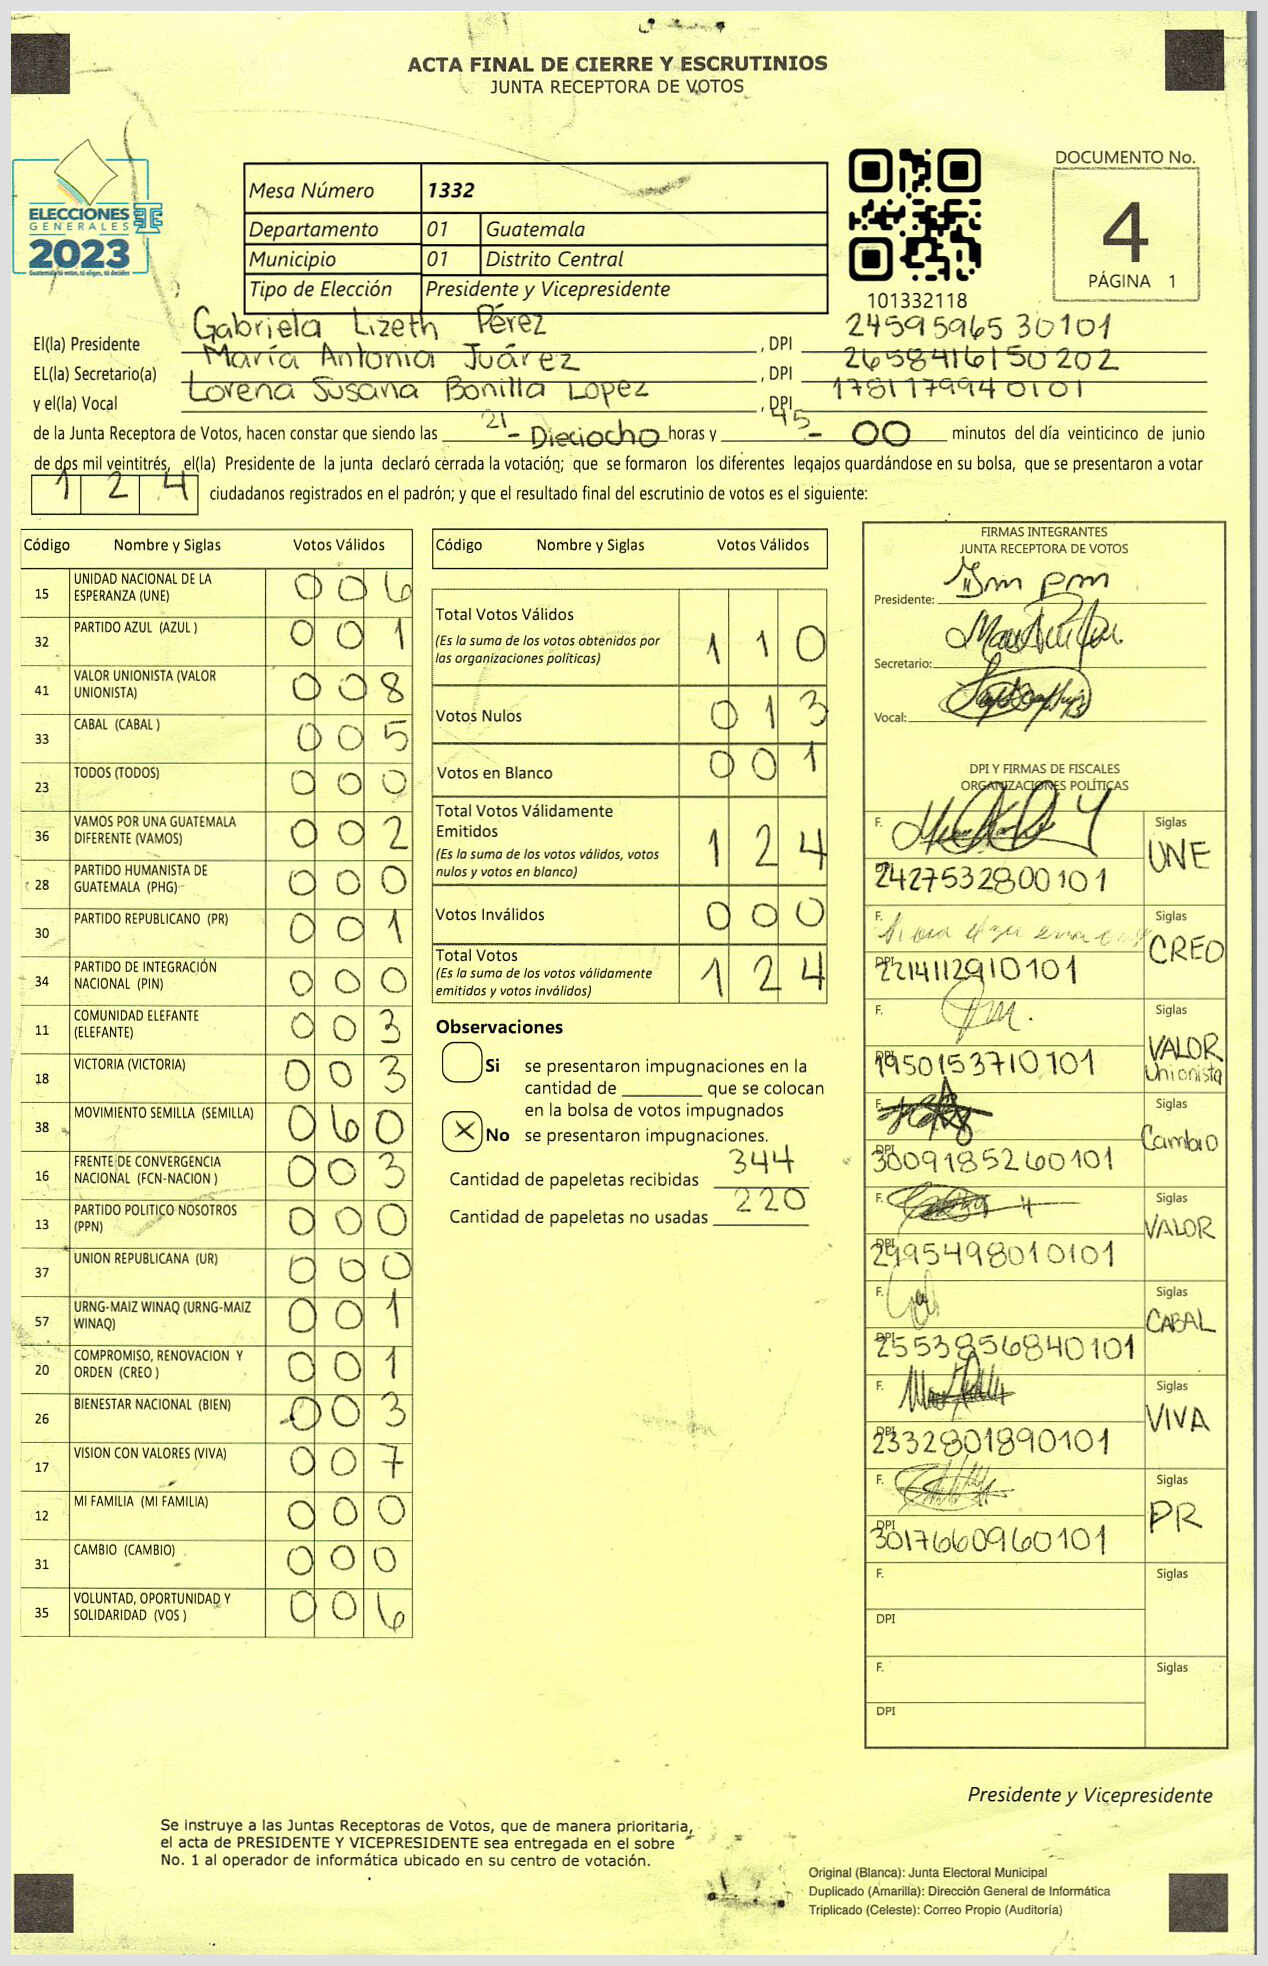 ACTA FINAL DE CIERRE Y ESCRUTINIOS
JUNTA RECEPTORA DE VOTOS
ELECCIONES
GENERALES
2023
Guatemala tú votas, tú eliges, tú decides
Mesa Número 1332
Departamento 01 Guatemala
Municipio 01 Distrito Central
Tipo de Elección Presidente y Vicepresidente
101332118
DOCUMENTO No.
4
PÁGINA 1
El(la) Presidente Gabriela Lizeth Pérez, DPI 2459596530101
EL(la) Secretario(a) María Antonia Juárez, DPI 2658416150202
y el(la) Vocal Lorena Susana Bonilla Lopez, DPI 1781179940101
21 45
de la Junta Receptora de Votos, hacen constar que siendo las - Dieciocho horas y - 00 minutos del día veinticinco de junio
de dos mil veintitrés, el(la) Presidente de la junta declaró cerrada la votación; que se formaron los diferentes legajos quardándose en su bolsa, que se presentaron a votar
124 ciudadanos registrados en el padrón; y que el resultado final del escrutinio de votos es el siguiente:
Código Nombre y Siglas Votos Válidos
15 UNIDAD NACIONAL DE LA ESPERANZA (UNE) 006
32 PARTIDO AZUL (AZUL ) 001
41 VALOR UNIONISTA (VALOR UNIONISTA) 008
33 CABAL (CABAL ) 005
23 TODOS (TODOS) 000
36 VAMOS POR UNA GUATEMALA DIFERENTE (VAMOS) 002
28 PARTIDO HUMANISTA DE GUATEMALA (PHG) 000
30 PARTIDO REPUBLICANO (PR) 001
34 PARTIDO DE INTEGRACIÓN NACIONAL (PIN) 000
11 COMUNIDAD ELEFANTE (ELEFANTE) 003
18 VICTORIA (VICTORIA) 003
38 MOVIMIENTO SEMILLA (SEMILLA) 060
16 FRENTE DE CONVERGENCIA NACIONAL (FCN-NACION ) 003
13 PARTIDO POLITICO NOSOTROS (PPN) 000
37 UNION REPUBLICANA (UR) 000
57 URNG-MAIZ WINAQ (URNG-MAIZ WINAQ) 001
20 COMPROMISO, RENOVACION Y ORDEN (CREO ) 001
26 BIENESTAR NACIONAL (BIEN) 003
17 VISION CON VALORES (VIVA) 007
12 MI FAMILIA (MI FAMILIA) 000
31 CAMBIO (CAMBIO) 000
35 VOLUNTAD, OPORTUNIDAD Y SOLIDARIDAD (VOS ) 006
Código Nombre y Siglas Votos Válidos
Total Votos Válidos 110
(Es la suma de los votos obtenidos por
las organizaciones políticas)
Votos Nulos 013
Votos en Blanco 001
Total Votos Válidamente
Emitidos 124
(Es la suma de los votos válidos, votos
nulos y votos en blanco)
Votos Inválidos 000
Total Votos 124
(Es la suma de los votos válidamente
emitidos y votos inválidos)
Observaciones
Si se presentaron impugnaciones en la
cantidad de ________ que se colocan
en la bolsa de votos impugnados
X No se presentaron impugnaciones.
Cantidad de papeletas recibidas 344
Cantidad de papeletas no usadas 220
FIRMAS INTEGRANTES
JUNTA RECEPTORA DE VOTOS
Presidente:
Secretario:
Vocal:
DPI Y FIRMAS DE FISCALES
ORGANIZACIONES POLÍTICAS
F. Siglas
2427532800101 UNE
F. Siglas
DPI 2214112910101 CREO
F. Siglas
DPI 1950153710101 VALOR Unionista
F. Siglas
DPI 3009185260101 Cambio
F. Siglas
DPI 2995498010101 VALOR
F. Siglas
DPI 2553856840101 CABAL
F. Siglas
DPI 2332801890101 VIVA
F. Siglas
DPI 3017660960101 PR
F. Siglas
DPI
F. Siglas
DPI
Presidente y Vicepresidente
Se instruye a las Juntas Receptoras de Votos, que de manera prioritaria,
el acta de PRESIDENTE Y VICEPRESIDENTE sea entregada en el sobre
No. 1 al operador de informática ubicado en su centro de votación.
Original (Blanca): Junta Electoral Municipal
Duplicado (Amarilla): Dirección General de Informática
Triplicado (Celeste): Correo Propio (Auditoría)